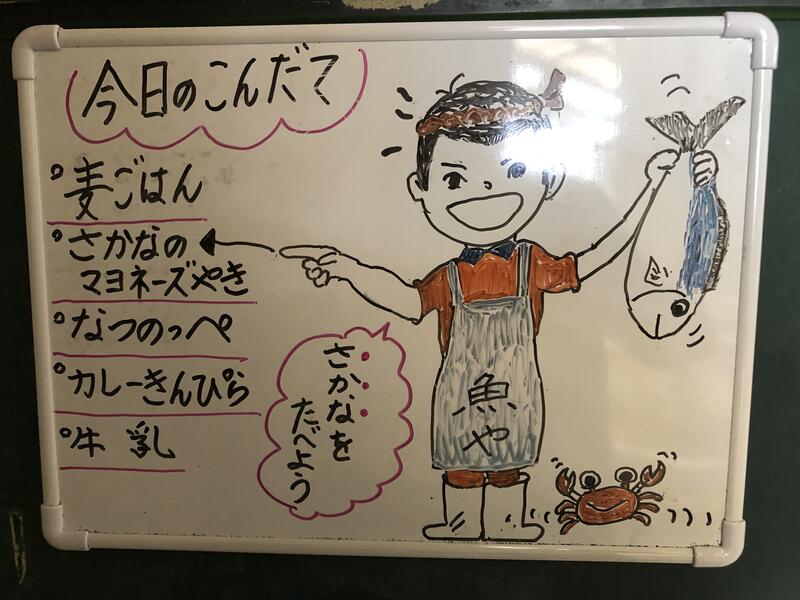 今日のこんだて
麦ごはん
さかなの
マヨネーズやき
なつのっぺ
カレーきんぴら
牛乳
さかなを
たべよう
魚や